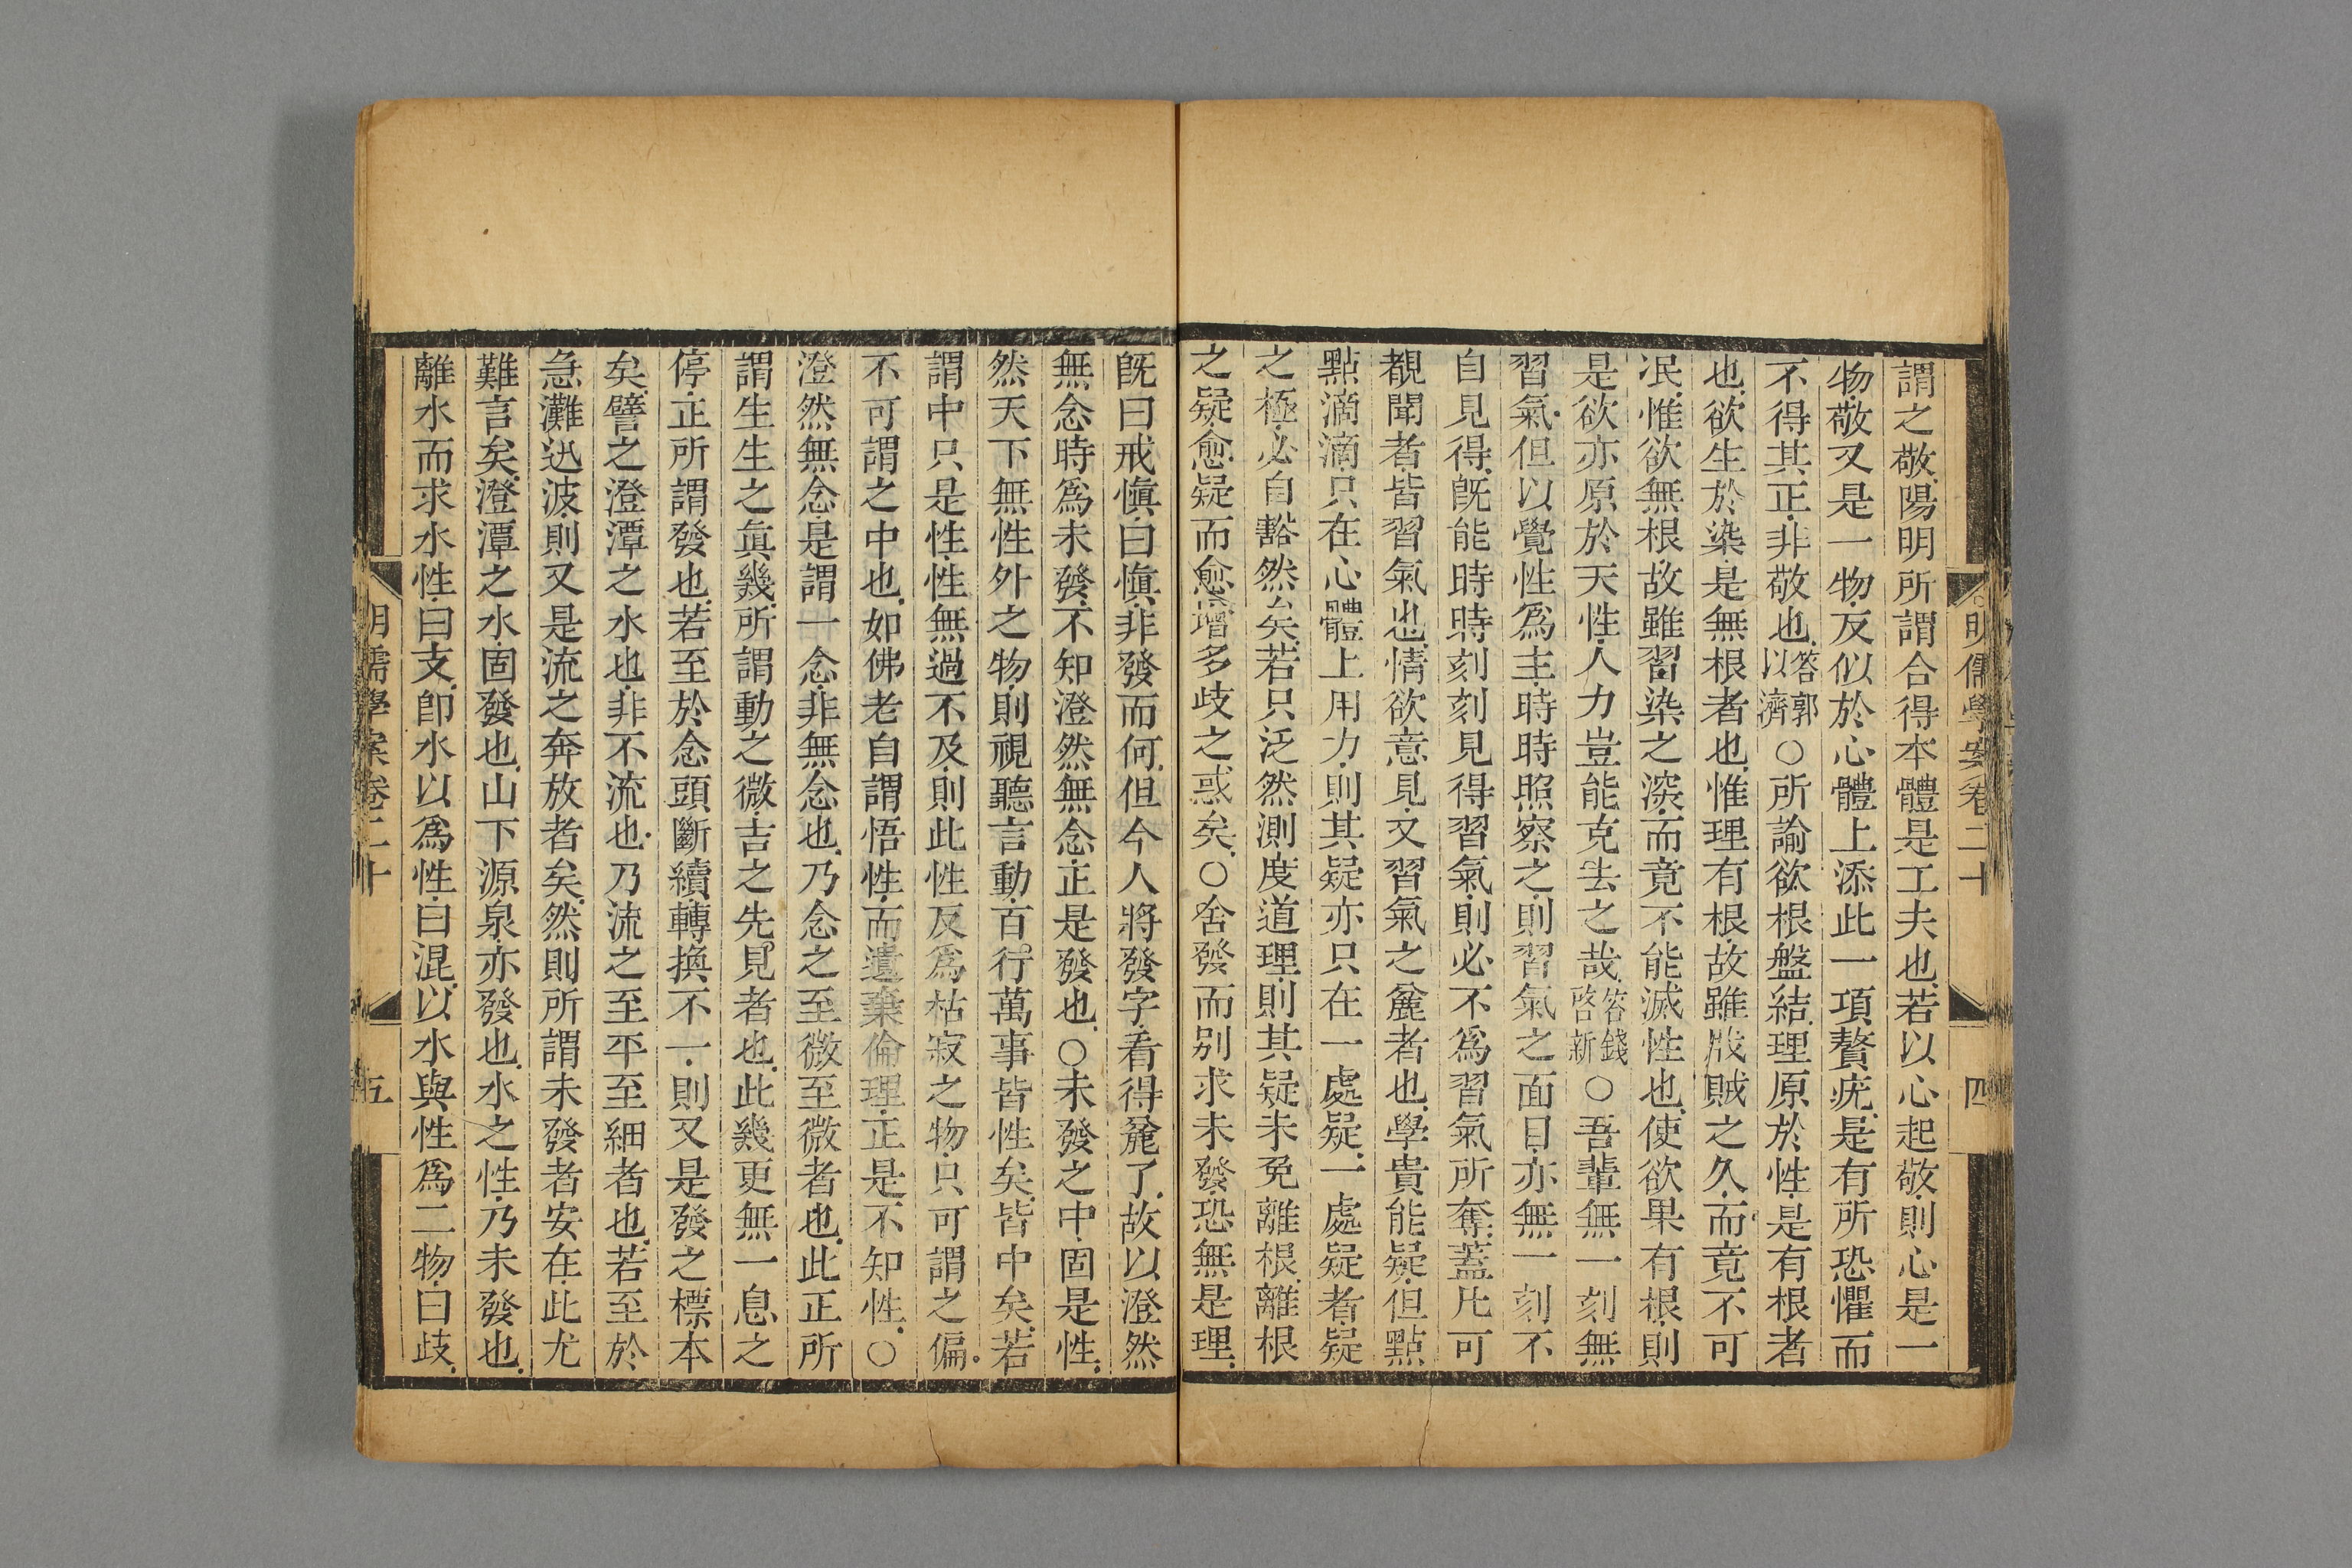 明儒學案卷二十
四
謂之敬陽明所謂合得本體是工夫也若以心起敬則心是一
物敬又是一物反似於心體上添此一項贅疣是有所恐懼而
不得其正非敬也答郭以濟○所諭欲根盤結理原於性是有根者
也欲生於染是無根者也惟理有根故雖戕賊之久而竟不可
泯惟欲無根故雖習染之深而竟不能滅性也使欲果有根則
是欲亦原於天性人力豈能克去之哉答錢啓新○吾輩無一刻無
習氣但以覺性爲主時時照察之則習氣之面目亦無一刻不
自見得旣能時時刻刻見得習氣則必不爲習氣所奪蓋凡可
覩聞者皆習氣也情欲意見又習氣之麄者也學貴能疑但點
點滴滴只在心體上用力則其疑亦只在一處疑一處疑者疑
之極必自豁然矣若只泛然測度道理則其疑未免離根離根
之疑愈疑而愈增多歧之惑矣○舍發而別求未發恐無是理
旣曰戒愼曰愼非發而何但今人將發字看得麄了故以澄然
無念時爲未發不知澄然無念正是發也○未發之中固是性
然天下無性外之物則視聽言動百行萬事皆性矣皆中矣若
謂中只是性性無過不及則此性反爲枯寂之物只可謂之偏
不可謂之中也如佛老自謂悟性而遺棄倫理正是不知性○
澄然無念是謂一念非無念也乃念之至微至微者也此正所
謂生生之眞幾所謂動之微吉之先見者也此幾更無一息之
停正所謂發也若至於念頭斷續轉換不一則又是發之標本
矣譬之澄潭之水也非不流也乃流之至平至細者也若至於
急灘迅波則又是流之奔放者矣然則所謂未發者安在此尤
難言矣澄潭之水固發也山下源泉亦發也水之性乃未發也
離水而求水性曰支卽水以爲性曰混以水與性爲二物曰歧
明儒學案卷二十
五